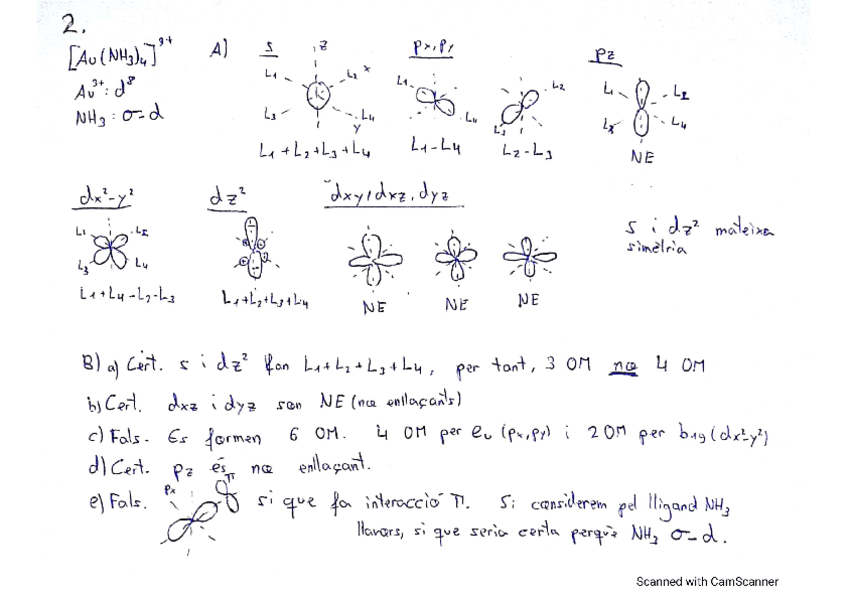 2.
[Au(NH3)4]3+
Au3+: d8
NH3: σ-d
A)
s
z
L1
L2
x
L3
L4
y
L1+L2+L3+L4
px, py
L1
L4
L1-L4
L2
L3
L2-L3
pz
L1
L2
L3
L4
NE
dx²-y²
L1
L2
L3
L4
L1+L4-L2-L3
dz²
L1+L2+L3+L4
dxy, dxz, dyz
NE
NE
NE
s i dz² mateixa
simetria
B) a) Cert. s i dz² fan L1+L2+L3+L4, per tant, 3 OM no 4 OM
b) Cert. dxz i dyz son NE (no enllaçants)
c) Fals. Es formen 6 OM. 4 OM per eu (px,py) i 2 OM per b1g (dx²-y²)
d) Cert. pz és no enllaçant.
e) Fals.
px
π
si que fa interacció π. Si considerem pel lligand NH3
llavors, si que seria certa perquè NH3 σ-d.
Scanned with CamScanner